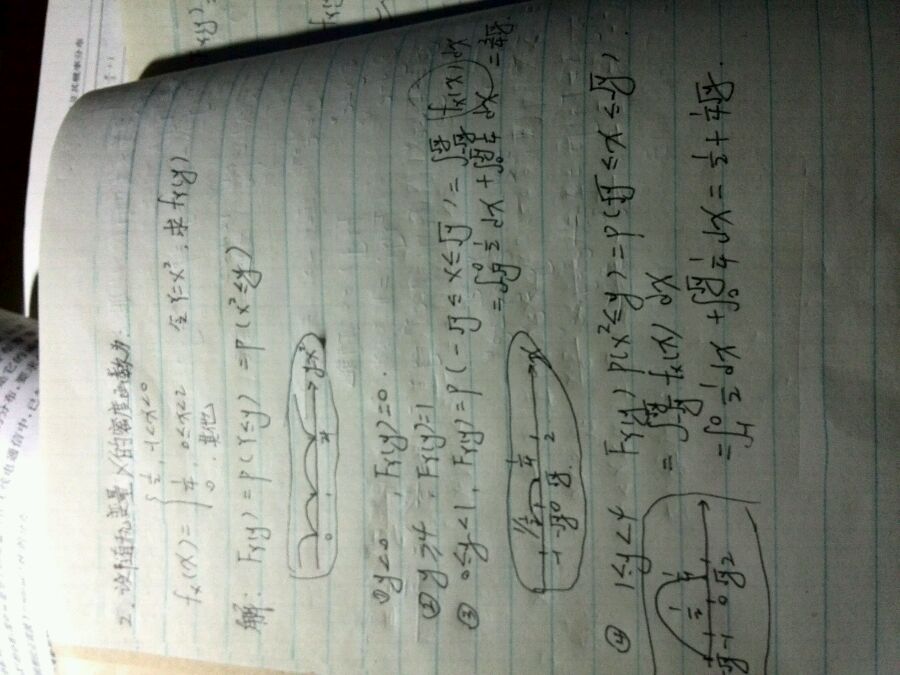 2. 设随机变量X的密度函数为
fx(x) = { 1/2, -1<x<0
1/4, 0≤x<2 令Y=X², 求 fY(y)
0, 其他
解: FY(y) = P(Y≤y) = P(X²≤y)
0 1 4 y=x²
① y<0, FY(y)=0.
② y≥4, FY(y)=1
③ 0≤y<1, FY(y)=P(-√y ≤ X ≤ √y) = ∫_{-√y}^{√y} fx(x) dx
= ∫_{-√y}^{0} 1/2 dx + ∫_{0}^{√y} 1/4 dx = 3/4 √y.
1/2 1/4
-1 -√y 0 √y 2 x
④ 1≤y<4 FY(y) P(X²≤y) = P(√y ≤ X ≤ √y).
= ∫_{-√y}^{√y} fx(x) dx
= ∫_{-1}^{0} 1/2 dx + ∫_{0}^{√y} 1/4 dx = 1/2 + 1/4 √y.
1/2 1/4
-√y -1 0 √y 2